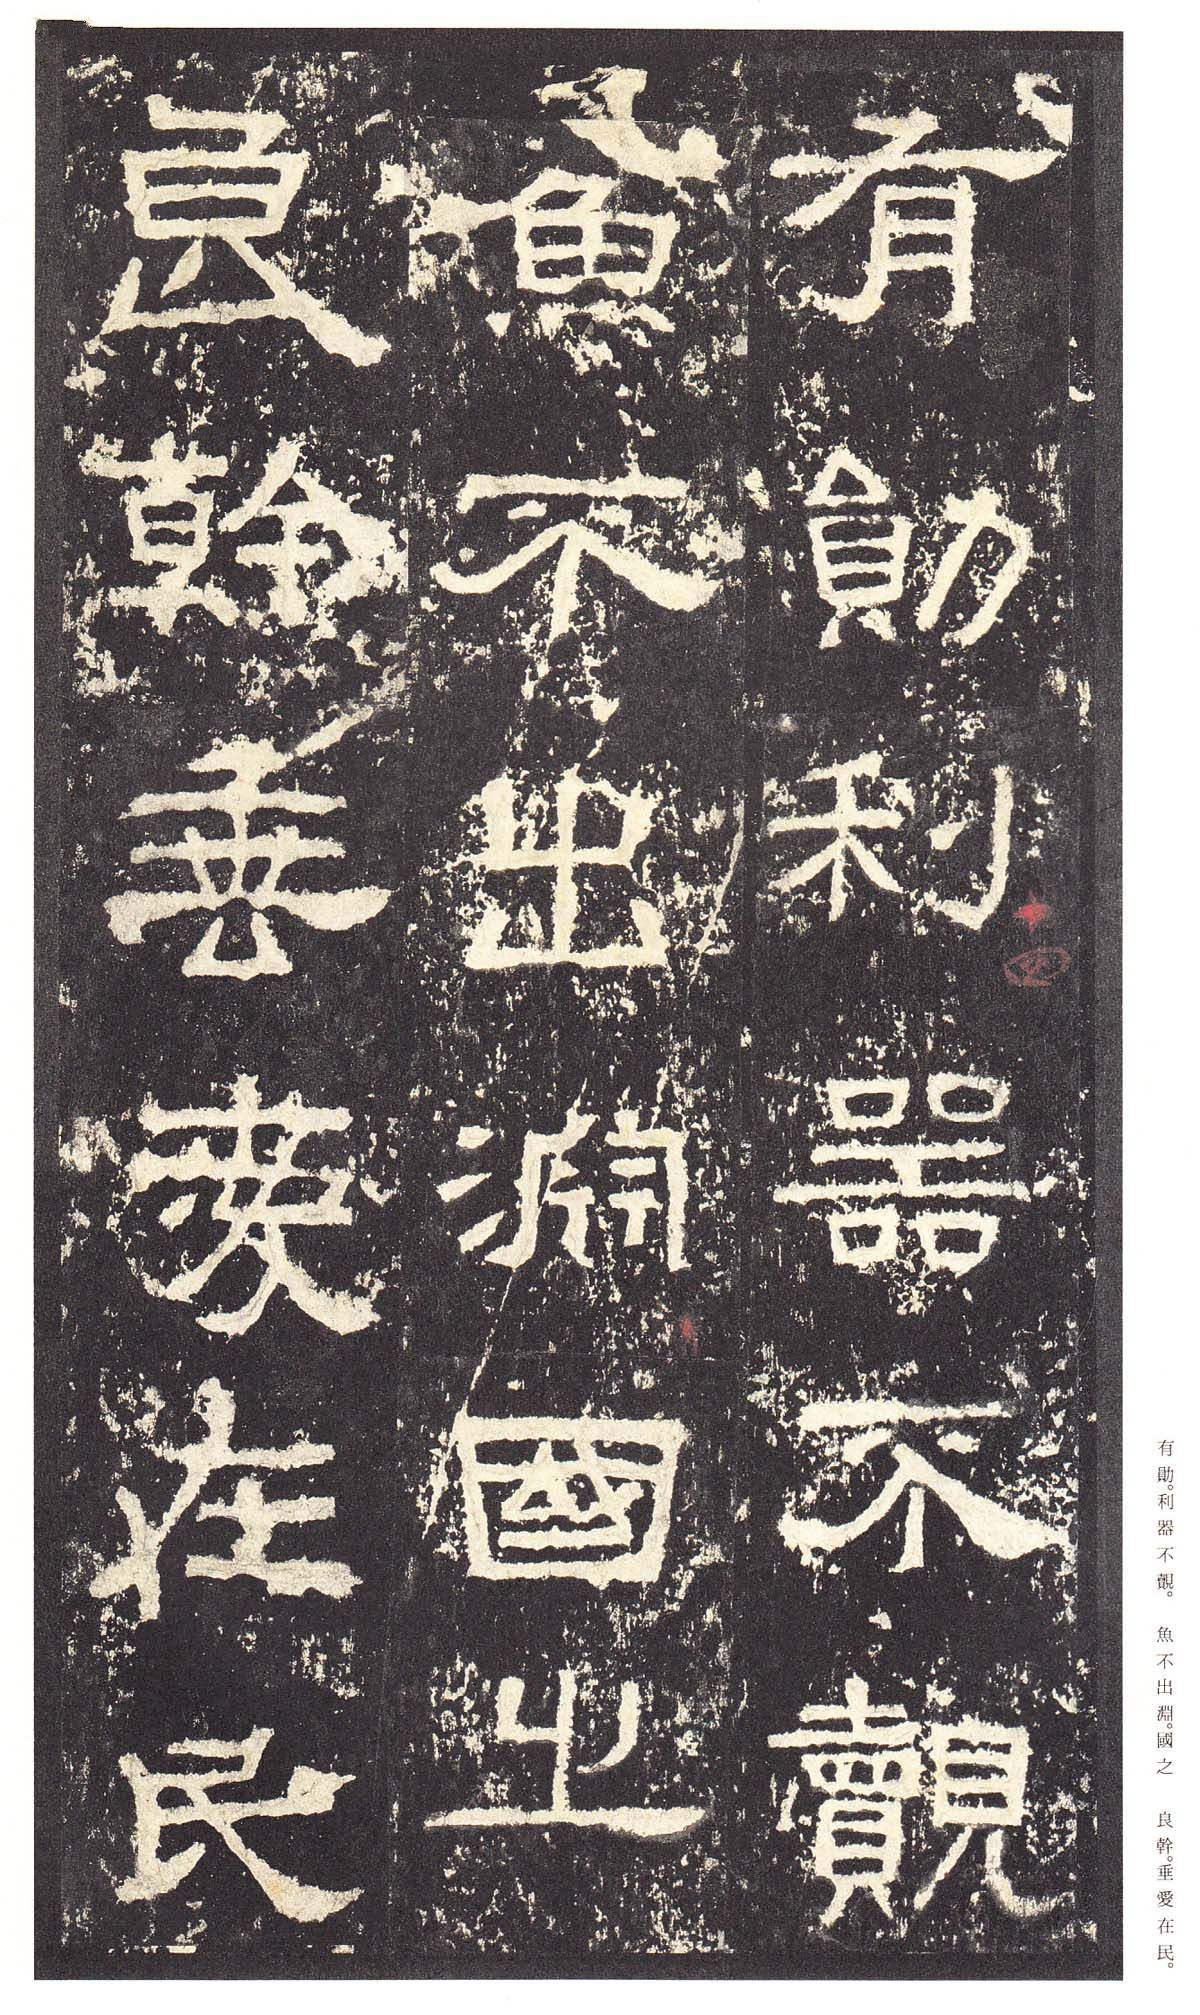 有勛利器不覿
魚不出淵國之
良幹垂愛在民
十四
有勛。利器不覿。 魚不出淵。國之 良幹。垂愛在民。